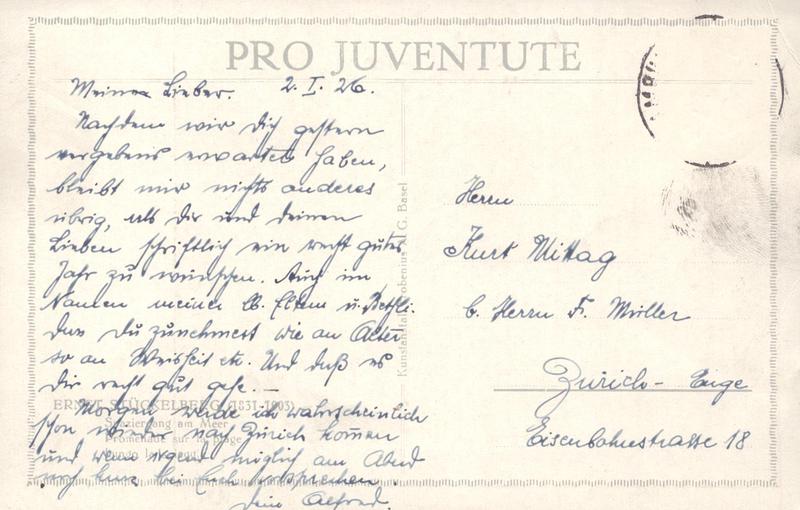 PRO JUVENTUTE
Meinen Lieber. 2. I. 26.
Nachdem wir Dich gestern
vergebens erwartet haben,
bleibt mir nichts anderes
übrig, als Dir und deinen
Lieben schriftlich ein recht gutes
Jahr zu wünschen. Auch im
Namen meiner lb. Eltern u. Bethli.
Dass Du zunehmest wie an Alter
so an Weisheit etc. Und daß es
Dir recht gut gehe. —
Morgen werde ich wahrscheinlich
schon wieder nach Zürich kommen
und wenn irgend möglich am Abend
noch bei Euch vorsprechen.
Dein Alfred.
ERNST STÜCKELBERG (1831-1903)
Spaziergang am Meer
Promenade sur la plage
Kunstanstalt Frobenius A.G. Basel
Herrn
Kurt Mittag
b. Herrn F. Müller
Zürich - Enge
Eisenbahnstrasse 18